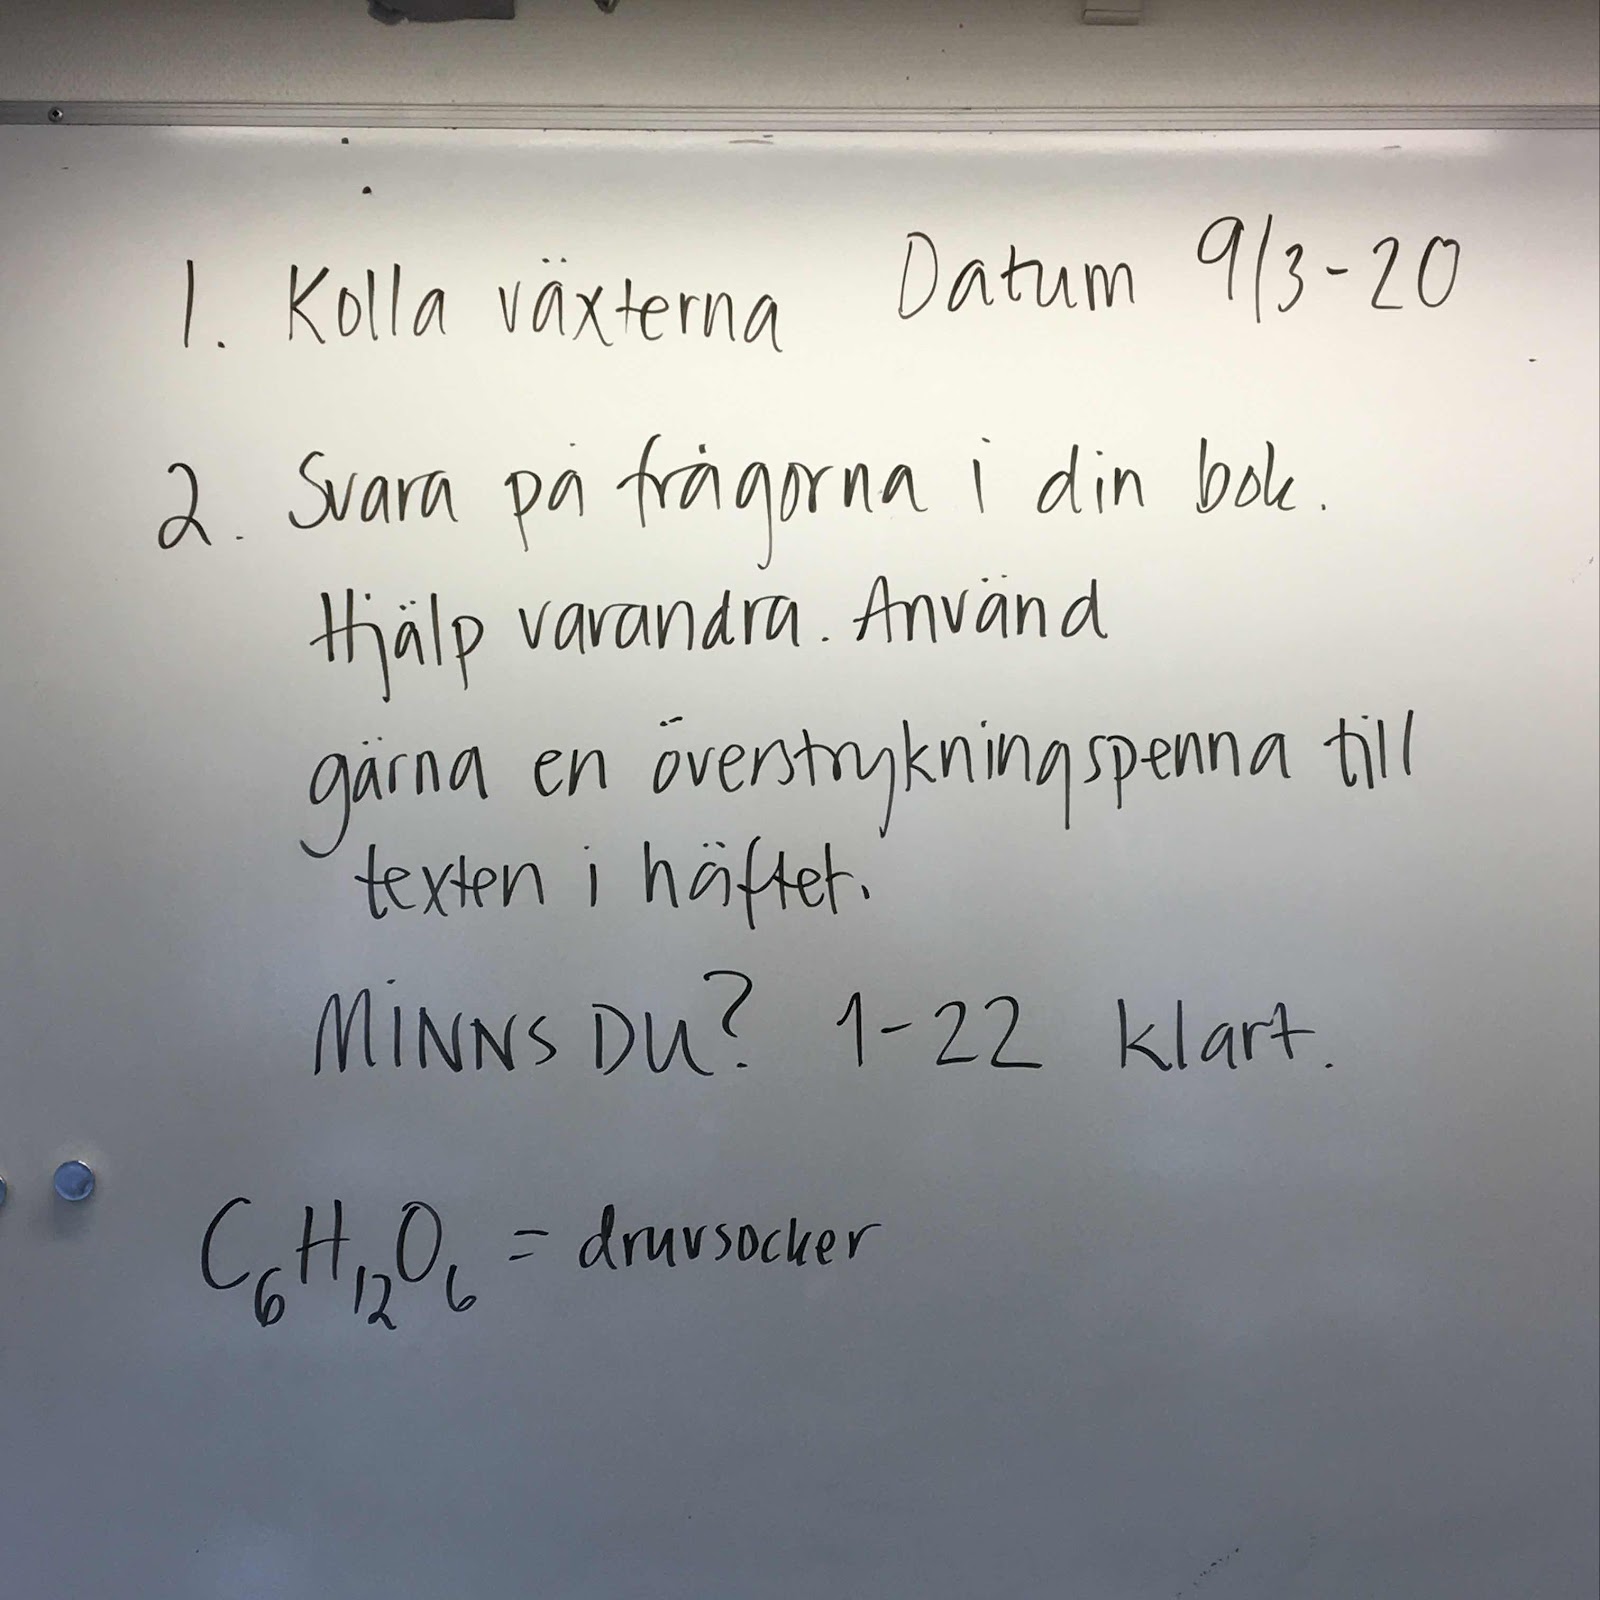 1. Kolla växterna Datum 9/3-20
2. Svara på frågorna i din bok.
Hjälp varandra. Använd
gärna en överstrykningspenna till
texten i häftet.
MINNS DU? 1-22 klart.
C₆H₁₂O₆ = druvsocker